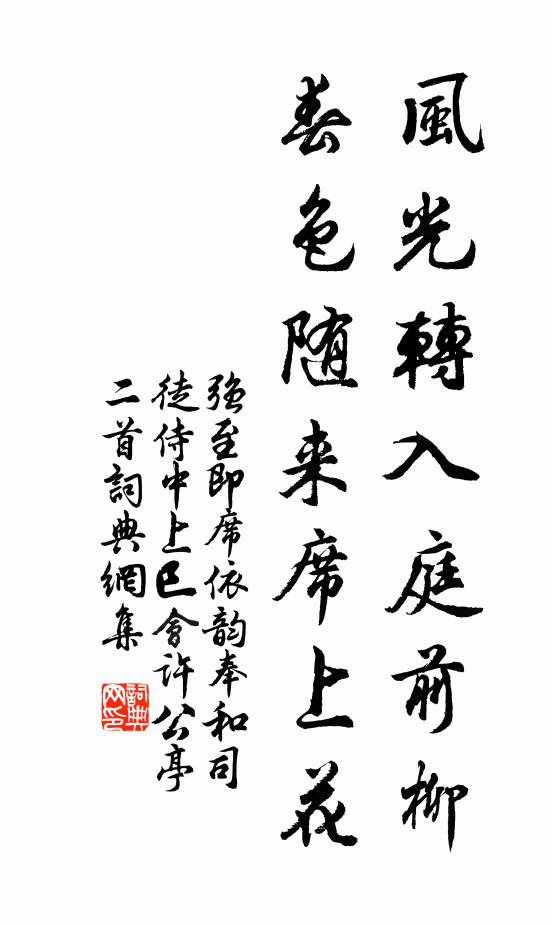 風光轉入庭前柳
春色随来席上花
強至即席依韵奉和司
徒侍中上巳會許公亭
二首詞典網集
詞典網印